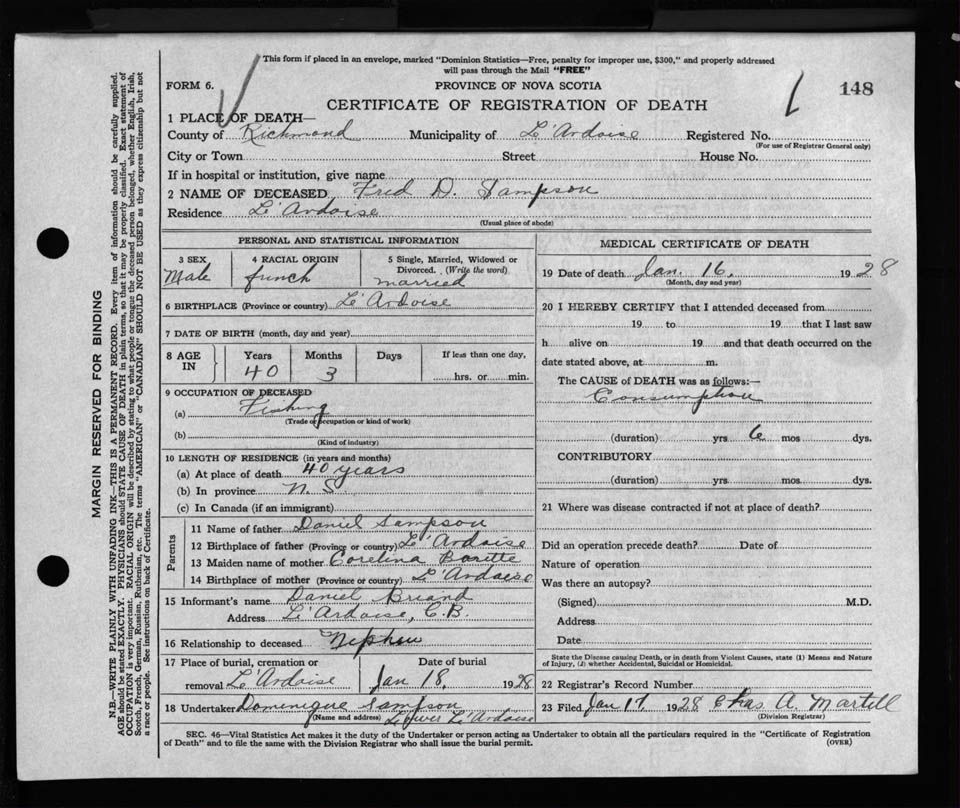 This form if placed in an envelope, marked "Dominion Statistics—Free, penalty for improper use, $300," and properly addressed
will pass through the Mail "FREE"
FORM 6.
PROVINCE OF NOVA SCOTIA
148
CERTIFICATE OF REGISTRATION OF DEATH
1 PLACE OF DEATH—
County of Richmond Municipality of L'Ardoise Registered No.
(For use of Registrar General only)
City or Town Street House No.
If in hospital or institution, give name
2 NAME OF DECEASED Fred D. Sampson
Residence L'Ardoise
(Usual place of abode)
PERSONAL AND STATISTICAL INFORMATION
3 SEX 4 RACIAL ORIGIN 5 Single, Married, Widowed or
Divorced. (Write the word)
Male french married
6 BIRTHPLACE (Province or country) L'Ardoise
7 DATE OF BIRTH (month, day and year)
8 AGE IN Years Months Days If less than one day,
40 3 hrs. or min.
9 OCCUPATION OF DECEASED
(a) Fishing
(Trade occupation or kind of work)
(b)
(Kind of industry)
10 LENGTH OF RESIDENCE (in years and months)
(a) At place of death 40 years
(b) In province N. S.
(c) In Canada (if an immigrant)
Parents
11 Name of father Daniel Sampson
12 Birthplace of father (Province or country) L'Ardoise
13 Maiden name of mother
14 Birthplace of mother (Province or country) L'Ardoise
15 Informant's name Daniel Briand
Address L'Ardoise, C.B.
16 Relationship to deceased Nephew
17 Place of burial, cremation or Date of burial
removal L'Ardoise Jan 18, 1928
18 Undertaker Dominique Sampson
(Name and address) Lower L'Ardoise
MEDICAL CERTIFICATE OF DEATH
19 Date of death Jan. 16, 1928
(Month, day and year)
20 I HEREBY CERTIFY that I attended deceased from
19 to 19 that I last saw
h alive on 19 and that death occurred on the
date stated above, at m.
The CAUSE of DEATH was as follows:—
Consumption
(duration) yrs 6 mos dys.
CONTRIBUTORY
(duration) yrs mos dys.
21 Where was disease contracted if not at place of death?
Did an operation precede death? Date of
Nature of operation
Was there an autopsy?
(Signed) M.D.
Address
Date
State the Disease causing Death, or in death from Violent Causes, state (1) Means and Nature
of Injury, (2) whether Accidental, Suicidal or Homicidal.
22 Registrar's Record Number
23 Filed Jan 17 1928 Chas A. Martell
(Division Registrar)
SEC. 46—Vital Statistics Act makes it the duty of the Undertaker or person acting as Undertaker to obtain all the particulars required in the "Certificate of Registration
of Death" and to file the same with the Division Registrar who shall issue the burial permit.
(OVER)
MARGIN RESERVED FOR BINDING
N.B.—WRITE PLAINLY WITH UNFADING INK—THIS IS A PERMANENT RECORD. Every item of information should be carefully supplied.
AGE should be stated EXACTLY. PHYSICIANS should STATE CAUSE OF DEATH in plain terms, so that it may be properly classified. Exact statement of
OCCUPATION is very important. RACIAL ORIGIN will be described by stating to what people or tongue the deceased person belonged, whether English, Irish,
Scotch, French, German, Russian, Ruthenian, etc. The terms "AMERICAN" or "CANADIAN" SHOULD NOT BE USED as they express citizenship but not
a race or people. See instructions on back of Certificate.